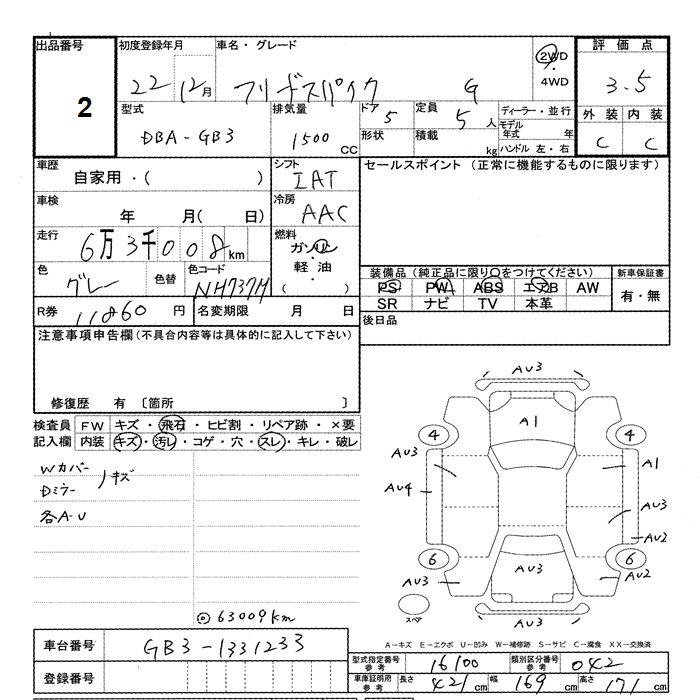 出品番号
2
初度登録年月
22 12月
車名・グレード
フリードスパイク G
2WD
4WD
評価点
3.5
外装 内装
C C
型式
DBA-GB3
排気量
1500 CC
ドア 5
形状
定員 5人
積載 kg
ディーラー・並行
モデル年式 年
ハンドル 左・右
車歴
自家用・( )
シフト
IAT
セールスポイント (正常に機能するものに限ります)
車検
年 月( 日)
冷房
AAC
走行
6万3千008km
燃料
ガソリン
軽油
( )
色
グレー
色替
色コード
NH737M
装備品(純正品に限り○をつけてください)
新車保証書
PS PW ABS エアB AW
有・無
SR ナビ TV 本革
R券 11860円
名変期限 月 日
後日品
注意事項申告欄(不具合内容等は具体的に記入して下さい)
修復歴 有 〔箇所 〕
検査員
記入欄
FW キズ・飛石・ヒビ割・リペア跡・×要
内装 キズ・汚レ・コゲ・穴・スレ・キレ・破レ
Wカバー
Dミラー
キズ
各A-U
◎63009km
AU3
A1
4
4
AU3
A1
AU4
AU3
AU2
6
6
AU3
AU3
AU2
AU3
スペア
A-キズ E-エクボ U-凹み W-補修跡 S-サビ C-腐食 XX-交換済
車台番号
GB3-1331233
登録番号
型式指定番号
参考
16100
類別区分番号
参考
042
車庫証明用
参考
長さ 421cm
幅 169cm
高さ 171cm